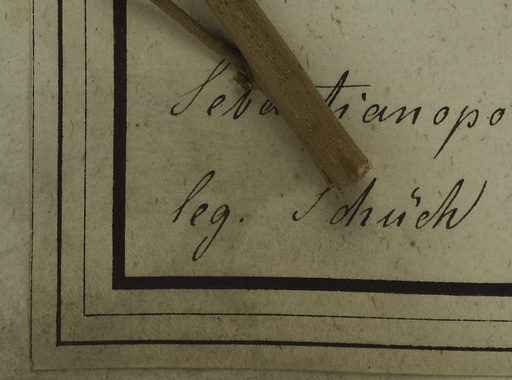 Sebastianopo
leg. Schüch